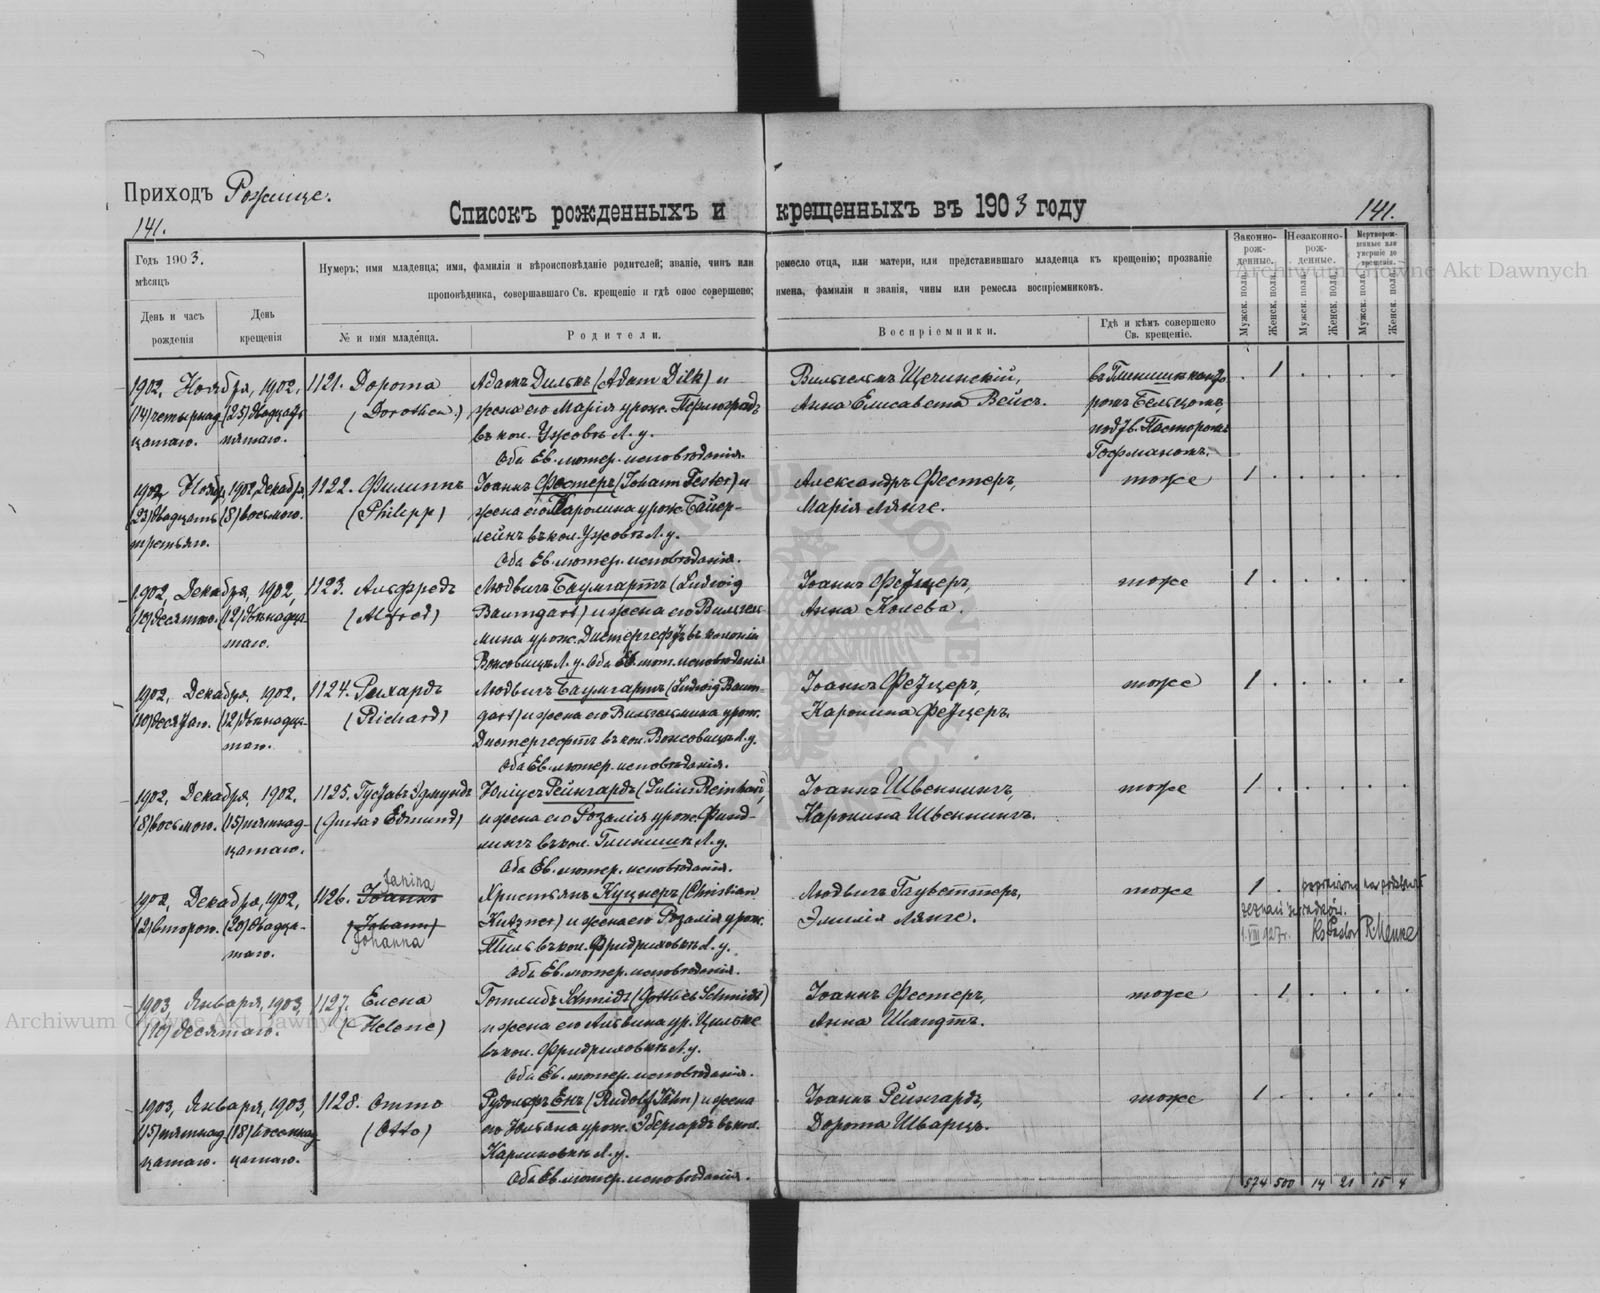 Приходъ Рожище.
Списокъ рожденныхъ и крещенныхъ въ 1903 году
141.
141.
Годъ 1903.
мѣсяцъ
День и часъ
рожденія
День
крещенія
Нумеръ; имя младенца; имя, фамилія и вѣроисповѣданіе родителей; званіе, чинъ или ремесло отца, или матери, или представившаго младенца къ крещенію; прозваніе
проповѣдника, совершавшаго Св. крещеніе и гдѣ оное совершено; имена, фамиліи и званія, чины или ремесла воспріемниковъ.
№ и имя младенца.
Родители.
Воспріемники.
Гдѣ и кѣмъ совершено
Св. крещеніе.
Законно-
рож-
денные.
Незаконно-
рож-
денные.
Мертворож-
денные или
умершіе до
крещенія.
Мужск. пола.
Женск. пола.
Мужск. пола.
Женск. пола.
Мужск. пола.
Женск. пола.
1902, Ноября, 1902,
(14) четырнад- (25) двадцать
цатаго. пятаго.
1121. Дорота
(Dorothea)
Адамъ Дилькъ (Adam Dilk) и
жена его Марія урож.
въ кол. Ужовъ Л. у.
Оба Ев. лютер. исповѣданія.
Вильгельмъ Щечинскій,
Анна Елисавета Вейсъ.
въ Глинищѣ канто-
ромъ Бельцомъ,
подтв. Пасторомъ
Гофманомъ.
1
1902, Ноябр. 1902, Декабря,
(23) двадцать (8) восьмого.
третьяго.
1122. Филиппъ
(Philipp)
Іоаннъ Фестеръ (Johann Fester) и
жена его Каролина урож. Байер-
лейнъ въ кол. Ужовъ Л. у.
Оба Ев. лютер. исповѣданія.
Александръ Фестеръ,
Марія Лянге.
тоже
1
1902, Декабря, 1902,
(10) десятаго. (12) двѣнадца-
таго.
1123. Альфредъ
(Alfred)
Людвигъ Баумгартъ (Ludwig
Baumgart) и жена его Вильгель-
мина урож. Дистергефтъ въ колоніи
Воксовицъ Л. у. Оба Ев. лют. исповѣданія
Іоаннъ Фетцеръ,
Анна Колева.
тоже
1
1902, Декабря, 1902.
(10) десятаго. (12) двѣнадца-
таго.
1124. Рихардъ
(Richard)
Людвигъ Баумгартъ (Ludwig Baum-
gart) и жена его Вильгельмина урож.
Дистергефтъ въ кол. Воксовицъ Л. у.
Оба Ев. лютер. исповѣданія.
Іоаннъ Фетцеръ,
Каролина Фетцеръ.
тоже
1
1902, Декабря, 1902.
(8) восьмого. (15) пятнад-
цатаго.
1125. Густавъ Эдмундъ
(Gustav Edmund)
Юліусъ Рейнгардъ (Julius Reinhard)
и жена его Розалія урож. Финд-
лингъ въ кол. Глинищѣ Л. у.
Оба Ев. лютер. исповѣданія.
Іоаннъ Швеннингъ,
Каролина Швеннингъ.
тоже
1
1902, Декабря, 1902,
(2) второго. (20) двадца-
таго.
Janina
1126. Іоаннъ
(Johann)
Johanna
Христьянъ Куцнеръ (Christian
Kutzner) и жена его Розалія урож.
Тильъ въ кол. Фридриховкѣ Л. у.
Оба Ев. лютер. исповѣданія.
Людвигъ Гауветтеръ,
Эмилія Лянге.
тоже
1
poprawiono na podstawie
zeznań świadków.
1.VIII 1927 r. Ks Pastor
1903, Января, 1903,
(10) десятаго.
1127. Елена
(Helene)
Готлибъ Schmidt (Gottlieb Schmidt)
и жена его Альвина ур. Цильке
въ кол. Фридриховкѣ Л. у.
Оба Ев. лютер. исповѣданія.
Іоаннъ Фестеръ,
Анна Шмидтъ.
тоже
1
1903, Января, 1903,
(15) пятнад- (18) восемнад-
цатаго. цатаго.
1128. Отто
(Otto)
Рудольфъ Енъ (Rudolf Jähn) и жена
его Юліана урож. Эбергардъ въ кол.
Карлиновкѣ Л. у.
Оба Ев. лютер. исповѣданія.
Іоаннъ Рейнгардъ,
Дорота Шварцъ.
тоже
1
574 500 14 21 15 4
Archiwum Główne Akt Dawnych
Archiwum Główne Akt Dawnych